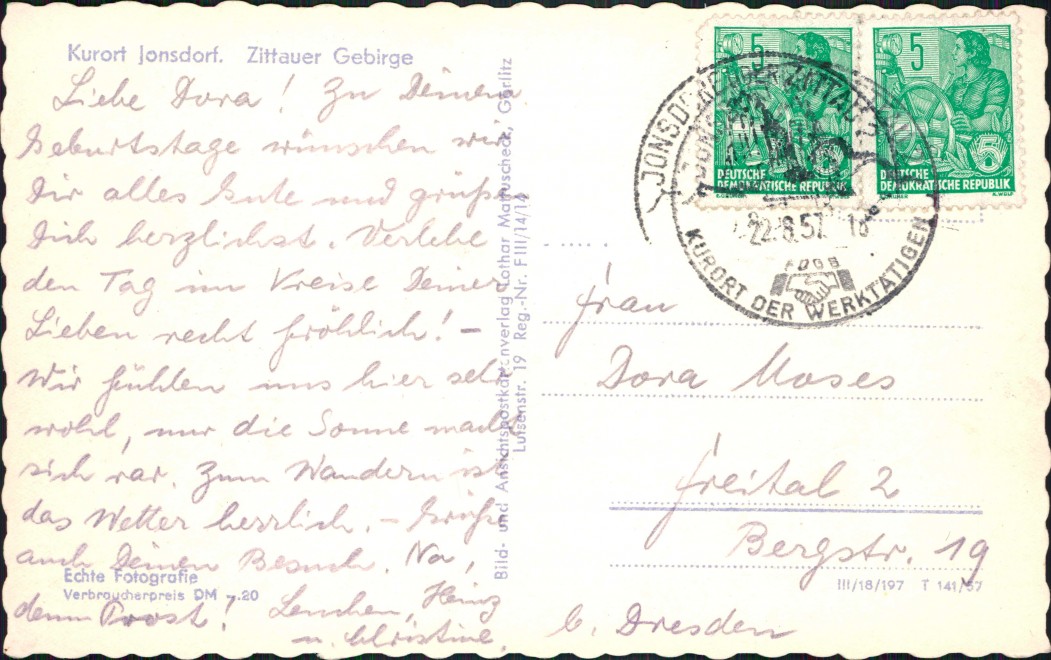 Kurort Jonsdorf. Zittauer Gebirge
Liebe Dora! Zu Deinem
Geburtstage wünschen wir
Dir alles Gute und grüßen
Dich herzlichst. Verlebe
den Tag im Kreise Deiner
Lieben recht fröhlich! –
Wir fühlen uns hier sehr
wohl, nur die Sonne macht
sich rar. Zum Wandern ist
das Wetter herrlich. – Grüße
auch Deinen Besuch. Na,
denn Prost! Lenchen, Heinz
u. Christine.
Echte Fotografie
Verbraucherpreis DM -.20
Bild- und Ansichtspostkartenverlag Lothar Mattuscheck, Görlitz
Luisenstr. 19 Reg.-Nr. FIII/14/16
5
DEUTSCHE
DEMOKRATISCHE REPUBLIK
5
5
DEUTSCHE
DEMOKRATISCHE REPUBLIK
A. WOLF
5
JONSDORF
ZITTAU
22.8.57
FDGB
KURORT DER WERKTÄTIGEN
Frau
Dora Moses
Freital 2
Bergstr. 19
b. Dresden
III/18/197 T 141/57